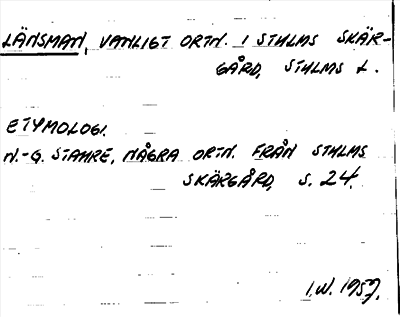 LÄNSMAN, VANLIGT ORTN. I STHLMS SKÄR-
GÅRD, STHLMS L.
ETYMOLOGI.
N.-G. STAHRE, NÅGRA ORTN. FRÅN STHLMS
SKÄRGÅRD, S. 24.
I.W. 1957.